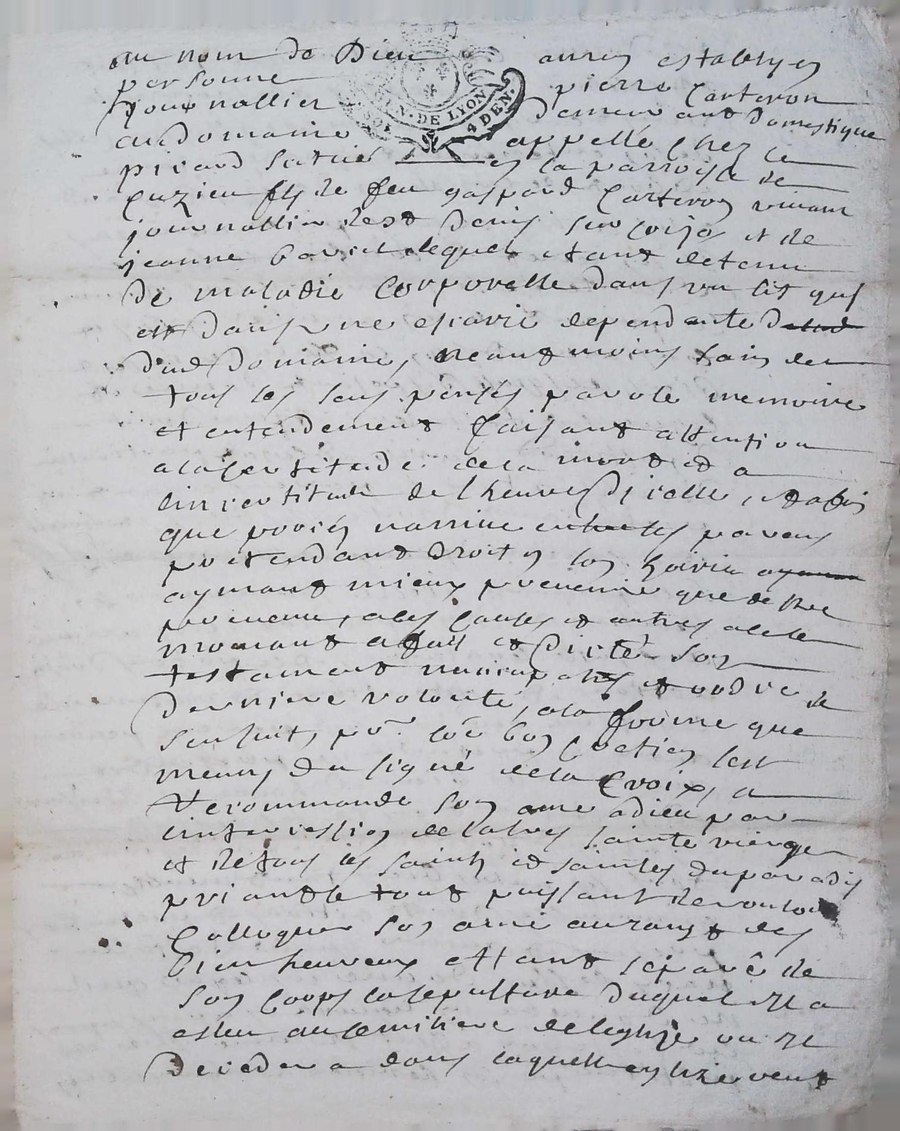 au nom de Dieu amen establyes
GEN. DE LYON
4 DEN.
personne pierre Carteron
journallier demeurant domestique
au domaine appellé chez le
picard situés en la parroisse de
Cuzieu fils de feu gaspard Carteron vivant
journallier de st Denis sur Coise et de
jeanne lequel etant detenu
de maladie Corporelle dans un lit quy
est dans une escurie dependante
dud domaine, neantmoins sain de
tous les sens pensés parole memoire
et entendement faisant attention
a la certitude de la mort et a
lincertitude de lheure Dicelle, et afin
que procés narrive entre les parens
pretendant Droits en son hoirie
aymant mieux prevenir que destre
prevenu, a les causes et autres a le
mouvant a fait et Dicté son
testament nuncupatif et ordre de
derniere volonté, a la forme que
sensuit, pr. coe bon cretien sest
muny du signe de la Croix, a
recommandé son ame a dieu par
lintercession de la tres sainte vierge
et de tous les saints et saintes du paradis
priant le tout puissant de vouloir
Colloquer son ame au rang des
bien heureux estant séparé de
son Corps la sepulture duquel il a
esleu au cemitiere de leglize ou il
decedera dans laquelle eglize veut